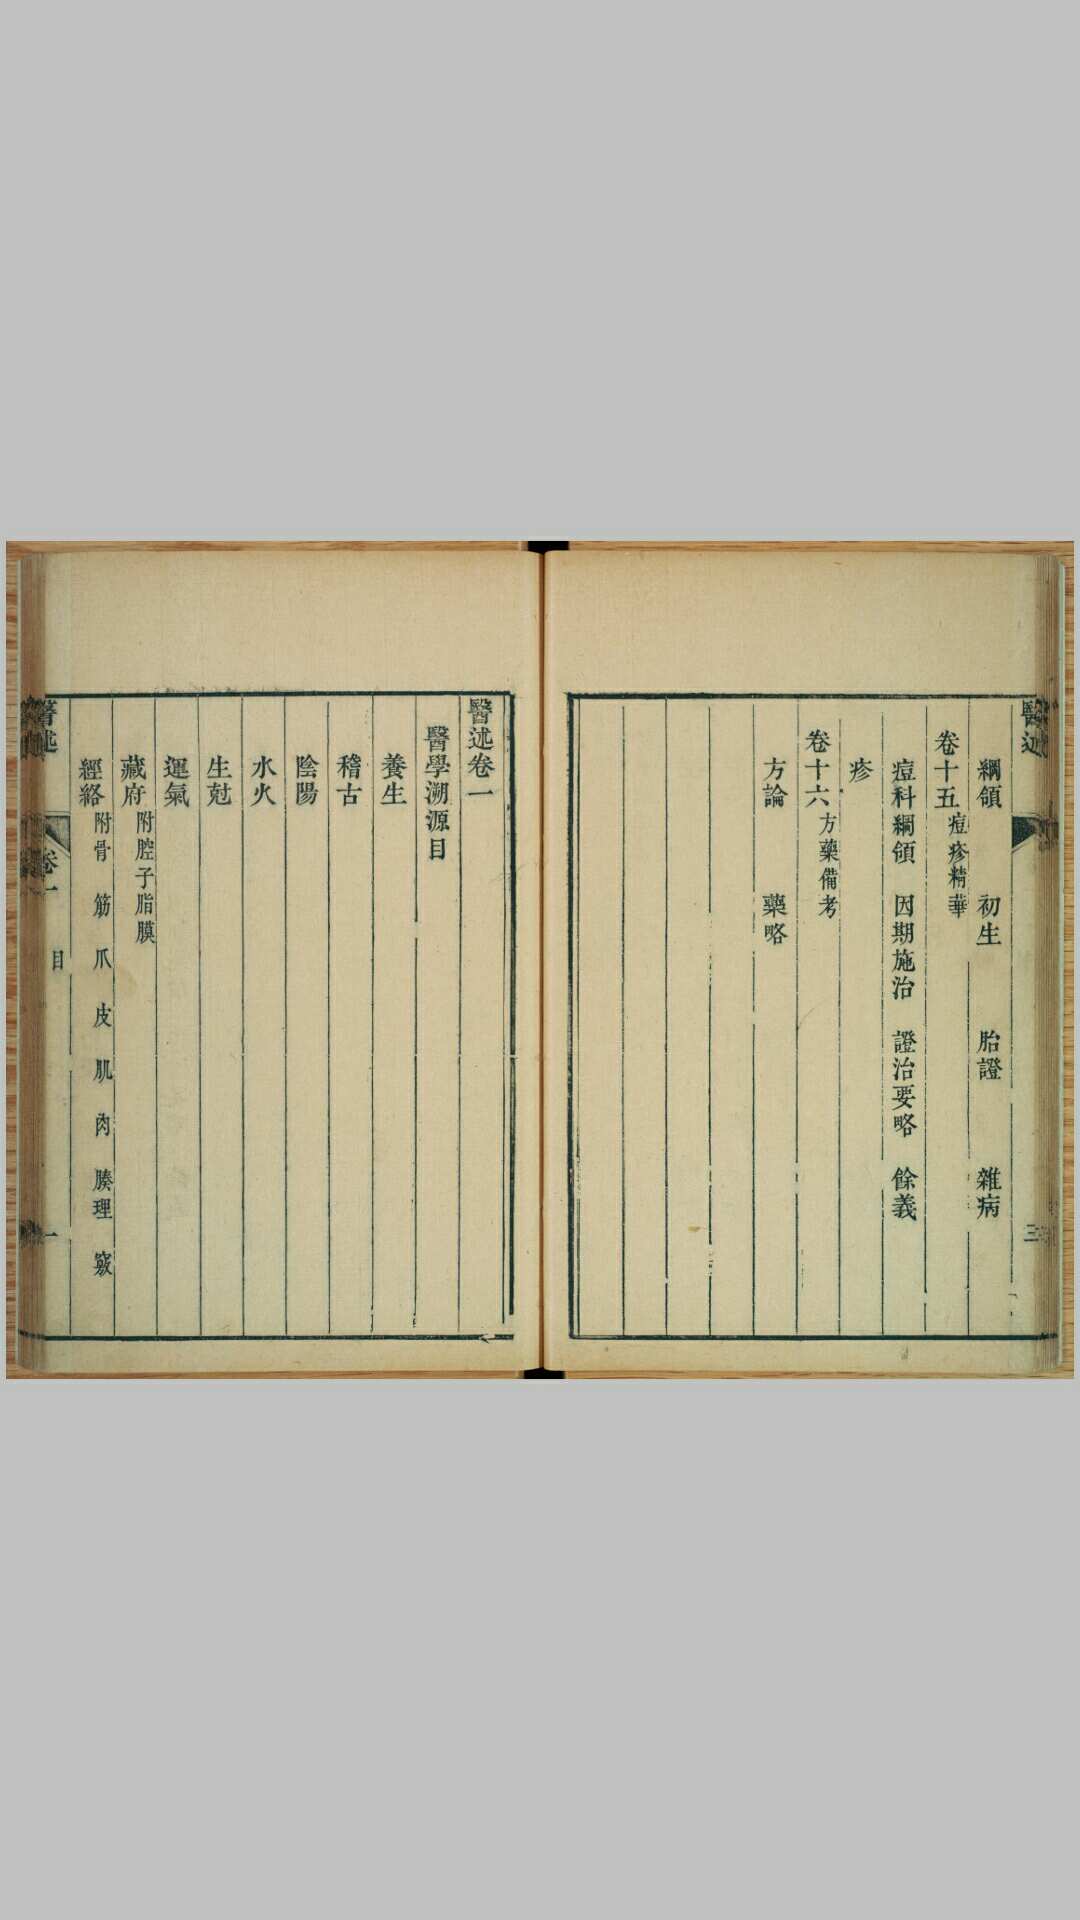 醫述
三
綱領　初生　胎證　雜病
卷十五痘疹精華
痘科綱領　因期施治　證治要略　餘義
疹
卷十六方藥備考
方論　藥略
醫述卷一
醫學溯源目
養生
稽古
陰陽
水火
生尅
運氣
藏府附腔子脂膜
經絡附骨　筋　爪　皮　肌　肉　腠理　竅
醫述　卷一　目　一